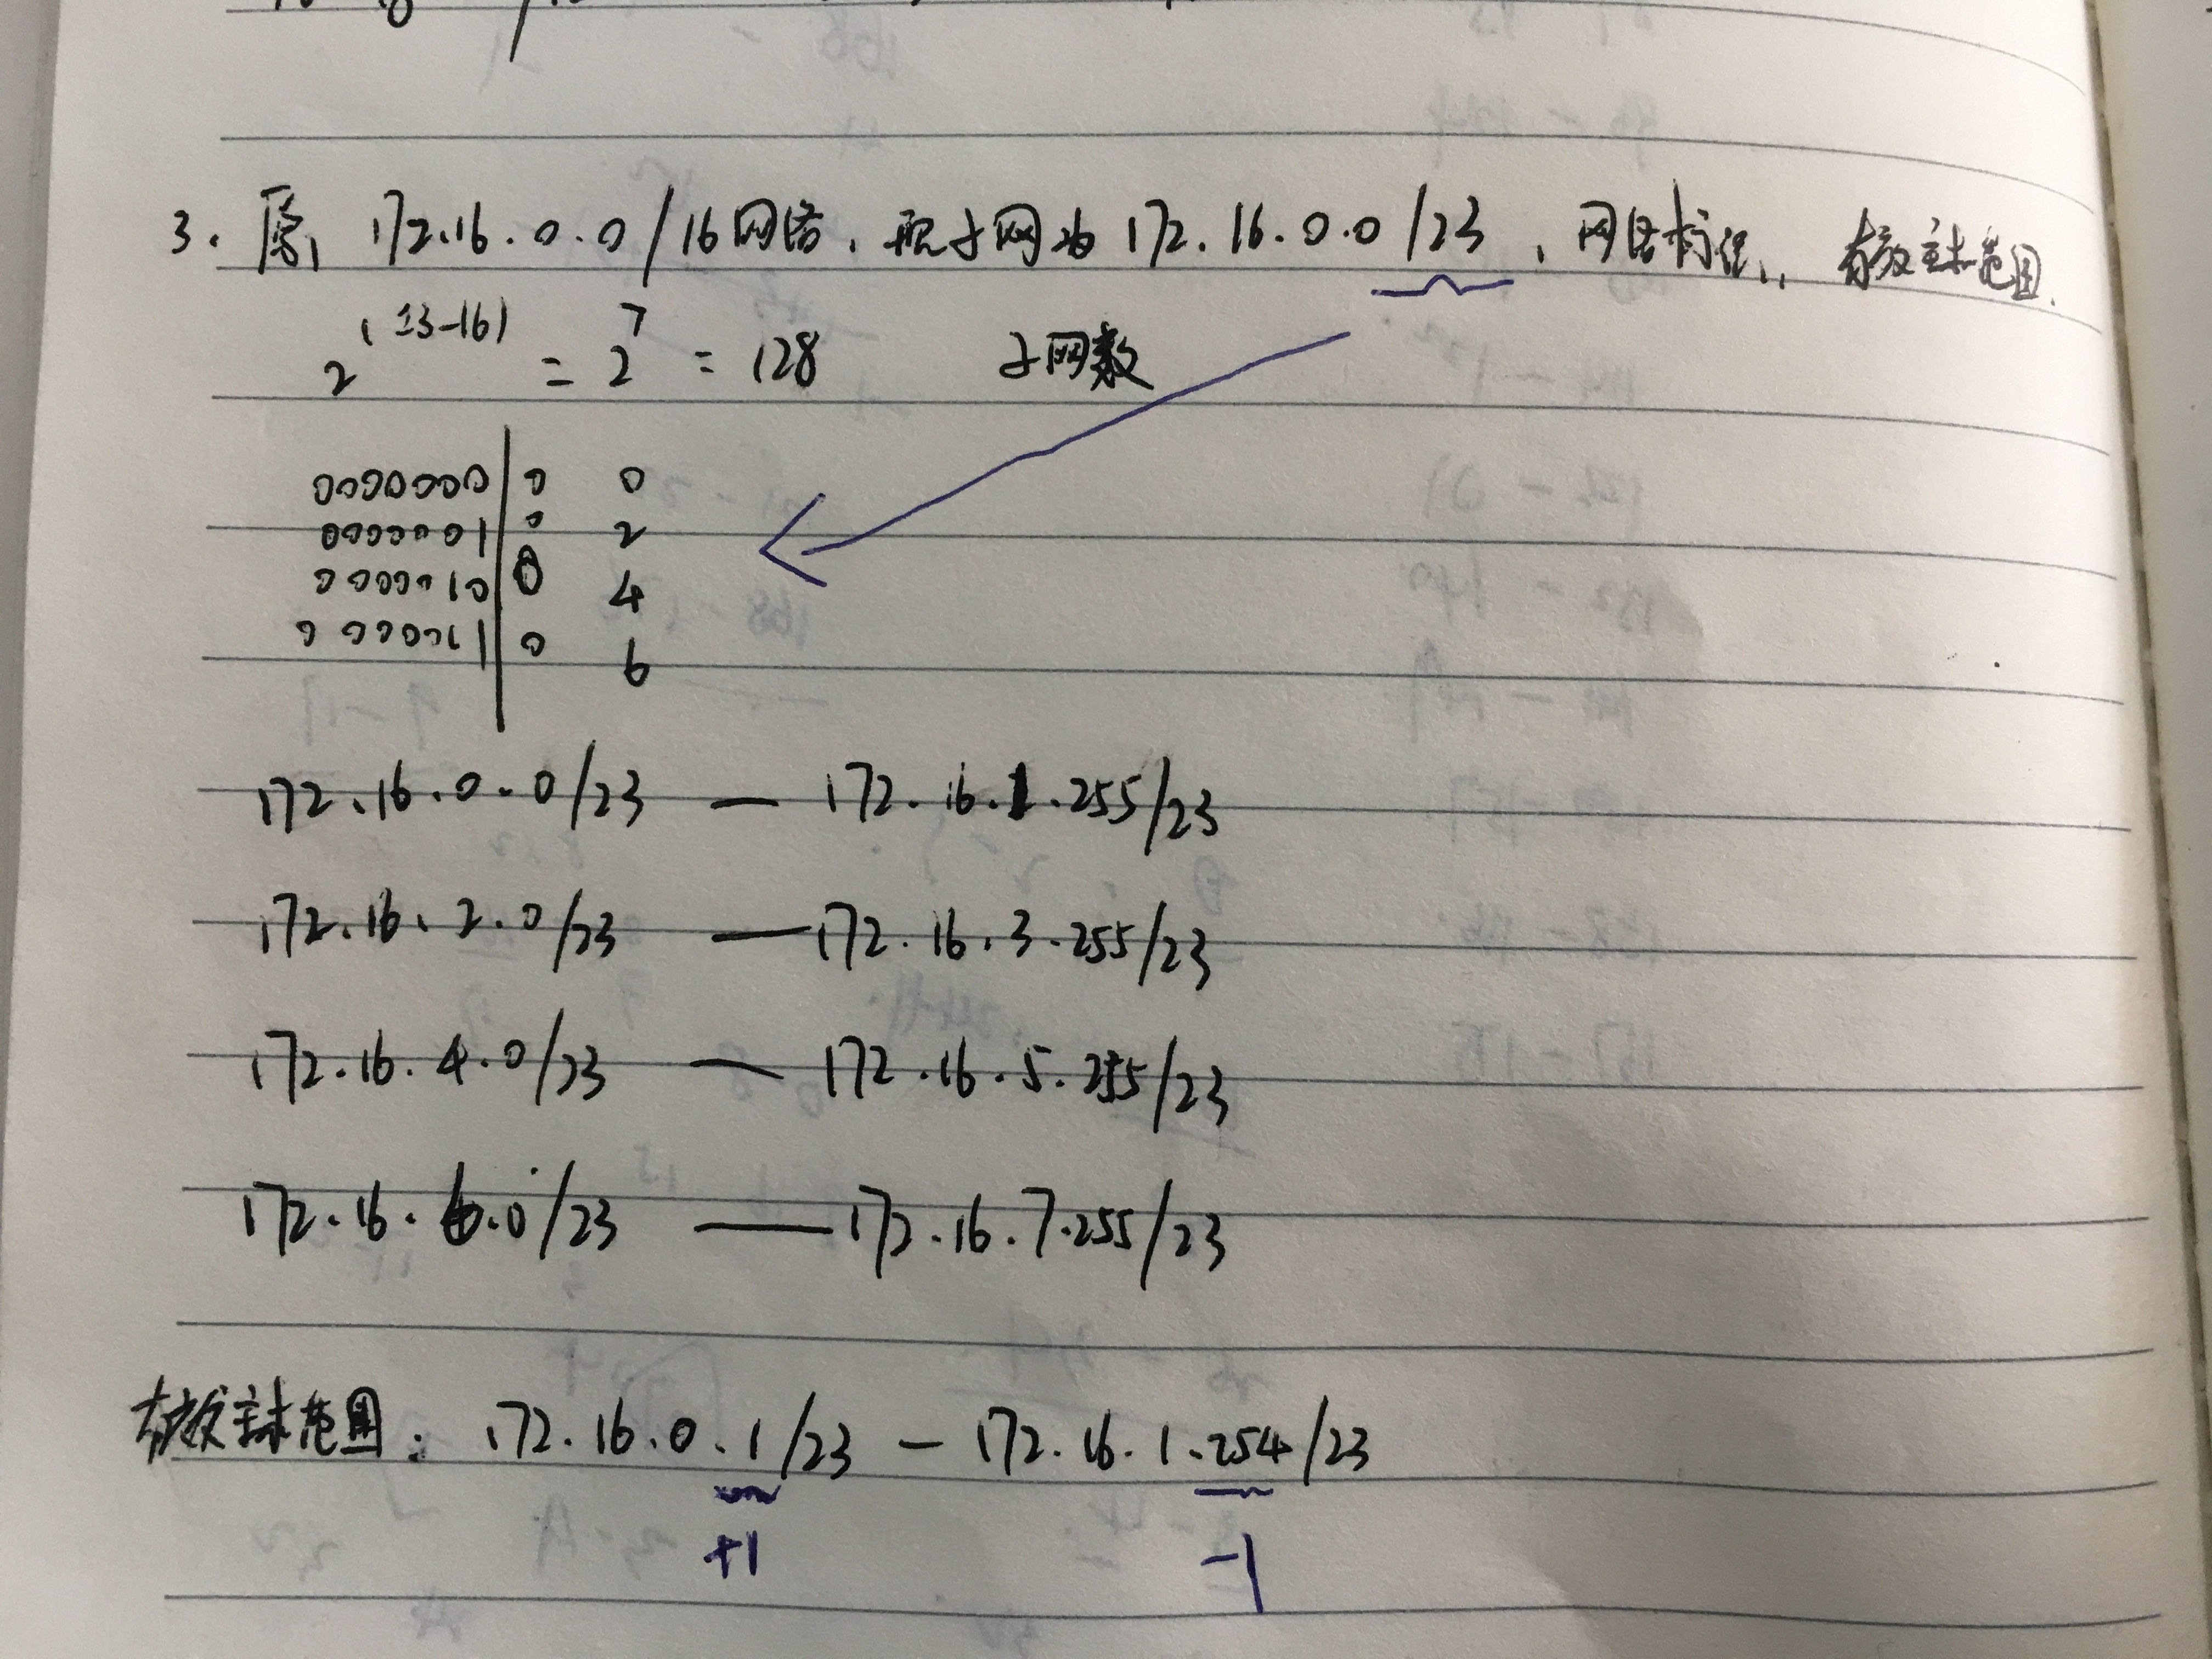 3. 原 172.16.0.0/16网络，现子网为 172.16.0.0/23，网络标识，有效主机范围.
2^(23-16) = 2^7 = 128 子网数
0000000|0 0
0000001|0 2
0000010|0 4
0000011|0 6
172.16.0.0/23 — 172.16.1.255/23
172.16.2.0/23 — 172.16.3.255/23
172.16.4.0/23 — 172.16.5.255/23
172.16.6.0/23 — 172.16.7.255/23
有效主机范围: 172.16.0.1/23 — 172.16.1.254/23
+1 -1